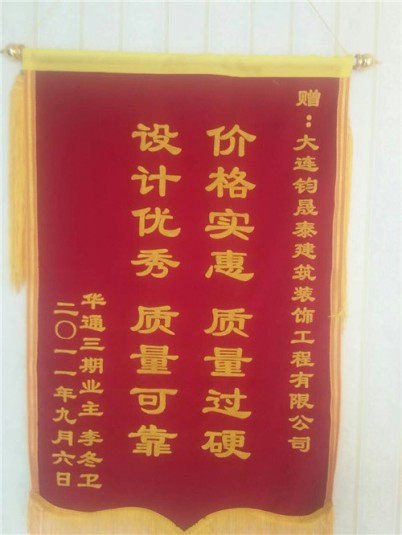 赠：大连钧晟泰建筑装饰工程有限公司
价格实惠 质量过硬
设计优秀 质量可靠
华通三期业主 李冬卫
二〇一一年九月六日